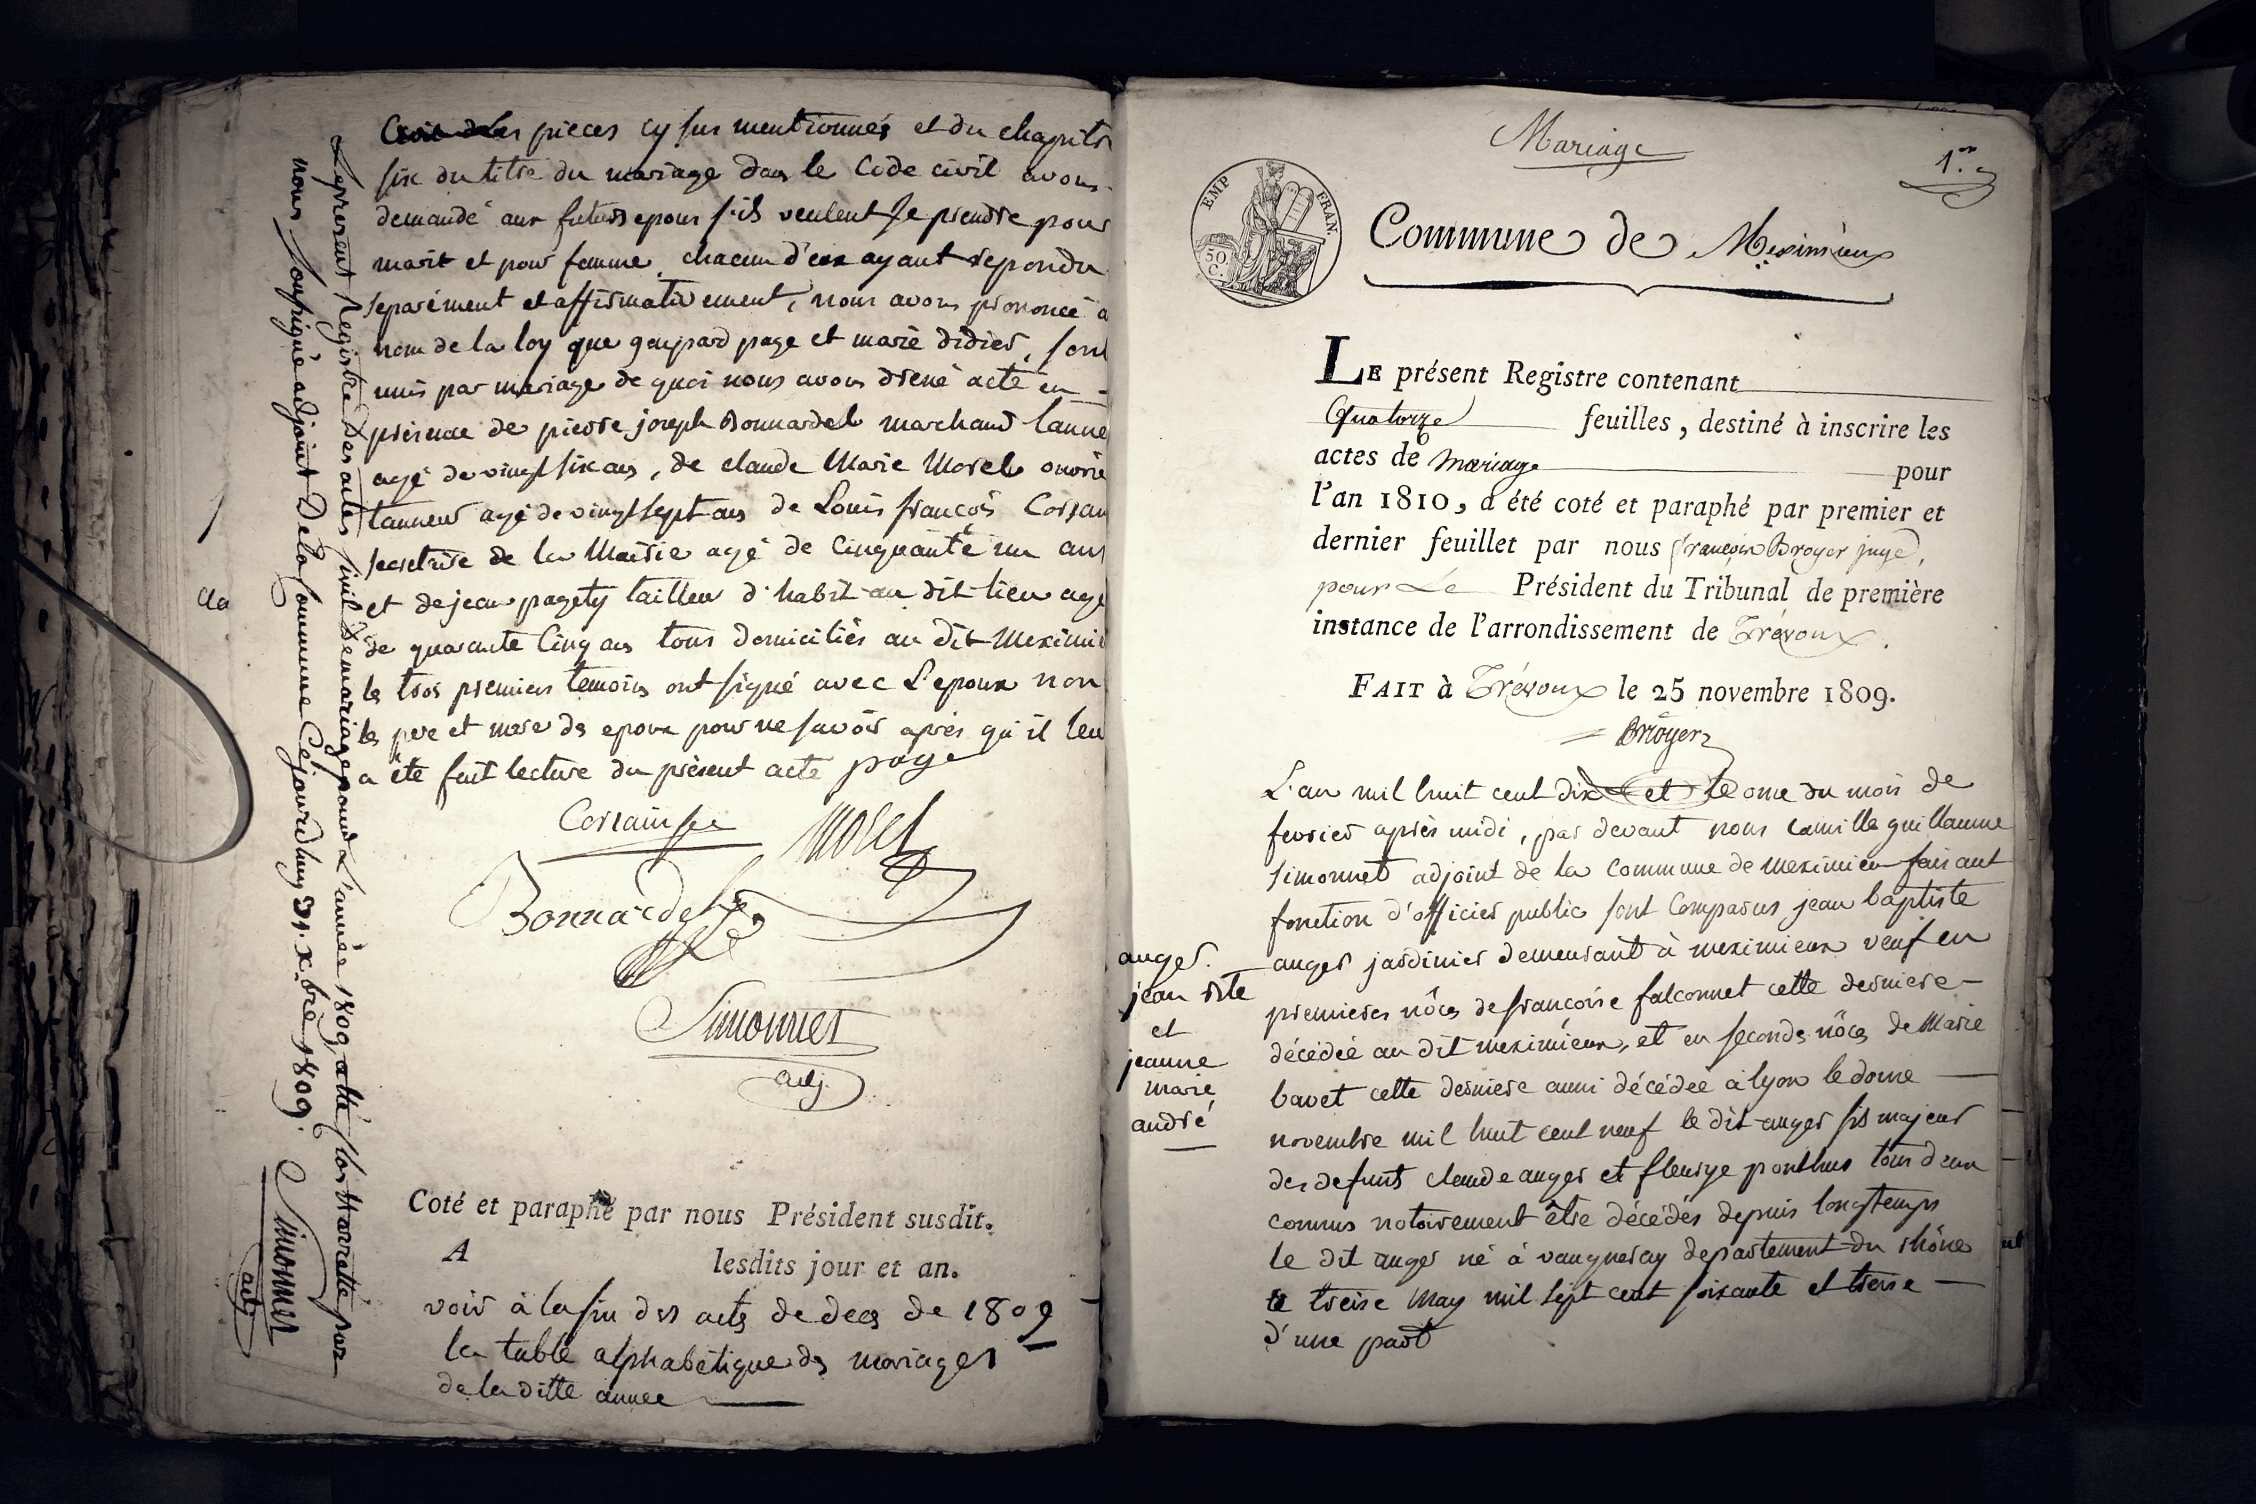 les pieces cy sus mentionnés et du chapitr
six du titre du mariage dans le Code civil avons
demandé aux futurs epoux s'ils veulent se prendre pour
marit et pour femme, chacun d'eux ayant repondu
separément et affirmativement, nous avons prononcé a
nom de la loy que gaspard page et marie didier, sont
unis par mariage de quoi nous avons dréné acte en
présence de pierre joseph Bonnardel marchand tanne
agé de vingt six ans, de claude Marie Morel ouvrie
tanneur agé de vingt sept ans de Louis françois Corsain
secretaire de la Mairie agé de cinquante un ans
et de jean pagety tailleur d'habit au dit lieu agé
de quarante cinq ans tous domiciliés au dit Meximie
les trois premiers temoins ont signé avec L'epoux non
les pere et mere des epoux pour ne savoir après qu'il leu
a été fait lecture du présent acte page
Corsain Morel
Bonnardel
Simonnet
adj.
Coté et paraphé par nous Président susdit.
A lesdits jour et an.
voir à la fin des acts de deces de 1809
la table alphabétique ds mariages
de la ditte année
Le present Registre des actes sivil de mariage pour L'année 1809 a été clos et arretté par
nous soussigné adjoint De la Commune Cejourd'huy 31. Xbre 1809.
Simonnet
adj
Mariage
1.er
EMP FRAN.
50 C.
Commune de Meximieux
LE présent Registre contenant
Quatorze feuilles, destiné à inscrire les
actes de mariage pour
l'an 1810, a été coté et paraphé par premier et
dernier feuillet par nous françois Broyer juge,
pour Le Président du Tribunal de première
instance de l'arrondissement de Trévoux.
FAIT à Trévoux le 25 novembre 1809.
Broyer
L'an mil huit cent dix et le onze du mois de
fevrier après midi, par devant nous camille guillaume
simonnet adjoint de la commune de meximieu faisant
fonction d'officier public sont comparus jean baptiste
anger jardinier demeurant à meximieux veuf en
premieres nôces de françoise falconnet cette derniere
décédée au dit meximieux, et en seconds nôces de Marie
bavet cette derniere aussi décédée à lyon le douze
novembre mil huit cent neuf le dit anger fils majeur
des defunts claude anger et fleurye ponthus tous deux
connus notoirement être décédés depuis longtemps
le dit anger né à vaugneray departement du rhône
le treize may mil sept cent soixante et treise
d'une part
anger.
jean bte
et
jeanne
marie
andré